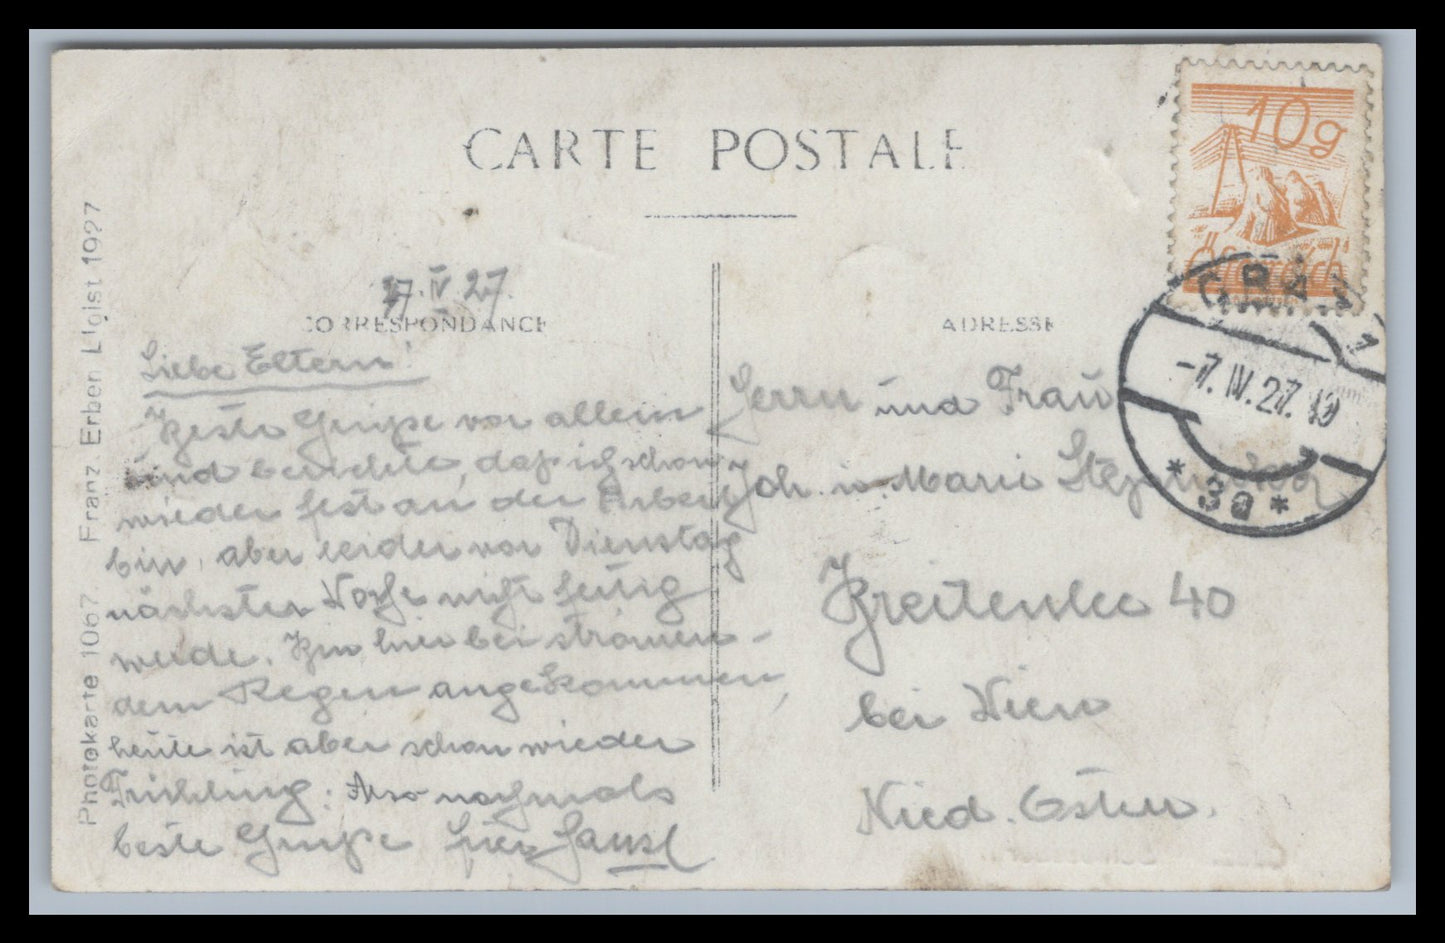 CARTE POSTALE
10g
Österreich
GRAZ 1
-7.IV.27.
* 3a *
CORRESPONDANCE
ADRESSE
Photokarte 1067 Franz Erben Ligist 1927
7.IV.27.
Liebe Eltern!
Beste Grüße vor allem
und berichte, daß ich schon
wieder fest an der Arbeit
bin, aber leider vor Dienstag
nächster Woche nicht fertig
werde. Bin hier bei strömen-
dem Regen angekommen,
heute ist aber schon wieder
Frühling. Also nochmals
beste Grüße Hansl
Herrn und Frau
Joh. u. Marie
Breitenlee 40
bei Wien
Nied. Österr.